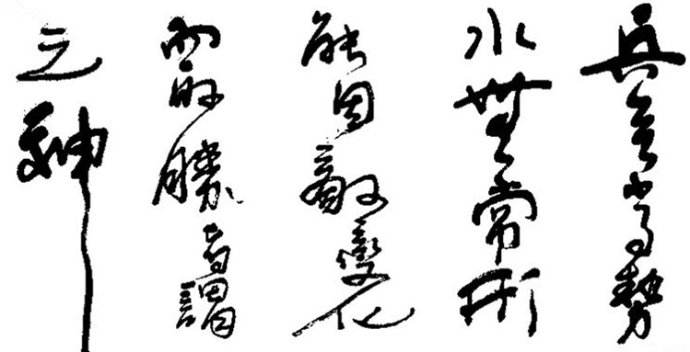 兵無常勢
水無常形
能因敵變化
而取勝者謂
之神